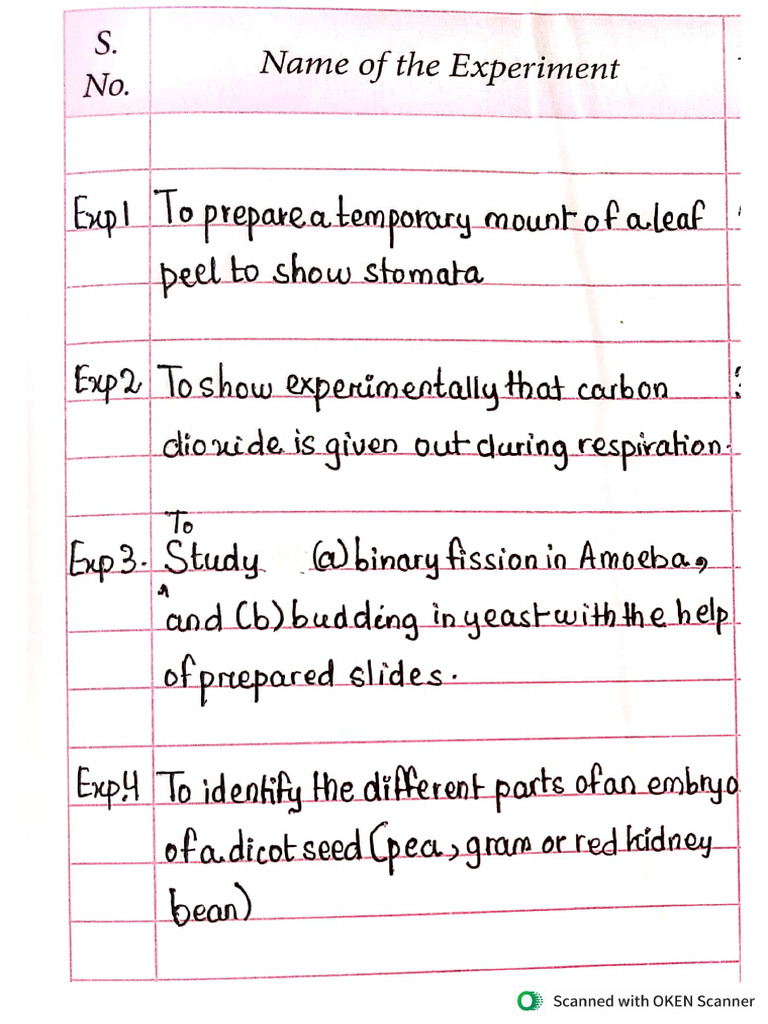 S. No.
Name of the Experiment
Exp1 To prepare a temporary mount of a leaf
peel to show stomata
Exp2 To show experimentally that carbon
dioxide is given out during respiration.
To
Exp 3. Study (a) binary fission in Amoeba,
^
and (b) budding in yeast with the help
of preepared slides.
Exp.4 To identify the different parts of an embryo
of a dicot seed (pea, gram or red kidney
bean)
Scanned with OKEN Scanner